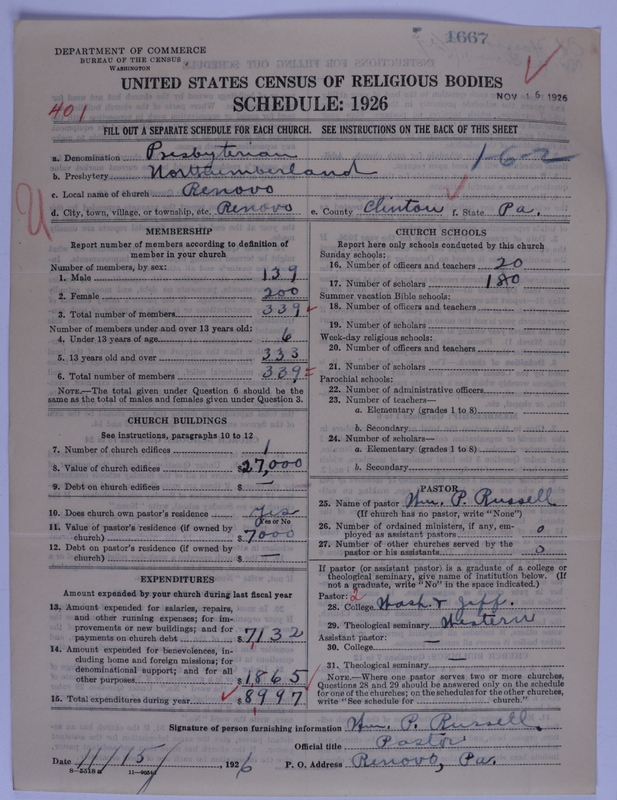 1667
DEPARTMENT OF COMMERCE
BUREAU OF THE CENSUS
WASHINGTON
UNITED STATES CENSUS OF RELIGIOUS BODIES
SCHEDULE: 1926
NOV 15 1926
401
FILL OUT A SEPARATE SCHEDULE FOR EACH CHURCH. SEE INSTRUCTIONS ON THE BACK OF THIS SHEET
a. Denomination Presbyterian
1-6-2
b. Presbytery Northumberland
c. Local name of church Renovo
d. City, town, village, or township, etc. Renovo e. County Clinton f. State Pa.
MEMBERSHIP
Report number of members according to definition of
member in your church
Number of members, by sex:
1. Male 139
2. Female 200
3. Total number of members 339
Number of members under and over 13 years old:
4. Under 13 years of age 6
5. 13 years old and over 333
6. Total number of members 339
NOTE.—The total given under Question 6 should be the
same as the total of males and females given under Question 3.
CHURCH BUILDINGS
See instructions, paragraphs 10 to 12
7. Number of church edifices 1
8. Value of church edifices $27,000
9. Debt on church edifices $ —
10. Does church own pastor's residence yes
(Yes or No
11. Value of pastor's residence (if owned by
church) $7000
12. Debt on pastor's residence (if owned by
church) $ —
EXPENDITURES
Amount expended by your church during last fiscal year
13. Amount expended for salaries, repairs,
and other running expenses; for im-
provements or new buildings; and for
payments on church debt $7132
14. Amount expended for benevolences, in-
cluding home and foreign missions; for
denominational support; and for all
other purposes $1865
15. Total expenditures during year $8997
CHURCH SCHOOLS
Report here only schools conducted by this church
Sunday schools:
16. Number of officers and teachers 20
17. Number of scholars 180
Summer vacation Bible schools:
18. Number of officers and teachers
19. Number of scholars
Week-day religious schools:
20. Number of officers and teachers
21. Number of scholars
Parochial schools:
22. Number of administrative officers
23. Number of teachers—
a. Elementary (grades 1 to 8)
b. Secondary
24. Number of scholars—
a. Elementary (grades 1 to 8)
b. Secondary
PASTOR
25. Name of pastor Wm. P. Russell
(If church has no pastor, write "None")
26. Number of ordained ministers, if any, em-
ployed as assistant pastors 0
27. Number of other churches served by the
pastor or his assistants 0
If pastor (or assistant pastor) is a graduate of a college or
theological seminary, give name of institution below. (If
not a graduate, write "No" in the space indicated.)
Pastor: 2
28. College Wash. & Jeff.
29. Theological seminary Western
Assistant pastor:
30. College —
31. Theological seminary —
NOTE.—Where one pastor serves two or more churches,
Questions 28 and 29 should be answered only on the schedule
for one of the churches; on the schedules for the other churches,
write "See schedule for church."
Signature of person furnishing information Wm. P. Russell
Official title Pastor
Date 11/15/, 1926 P. O. Address Renovo, Pa.